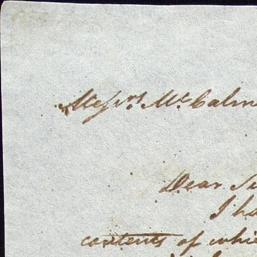 Messrs McCalm
Dear Si
I ha
contents of whi